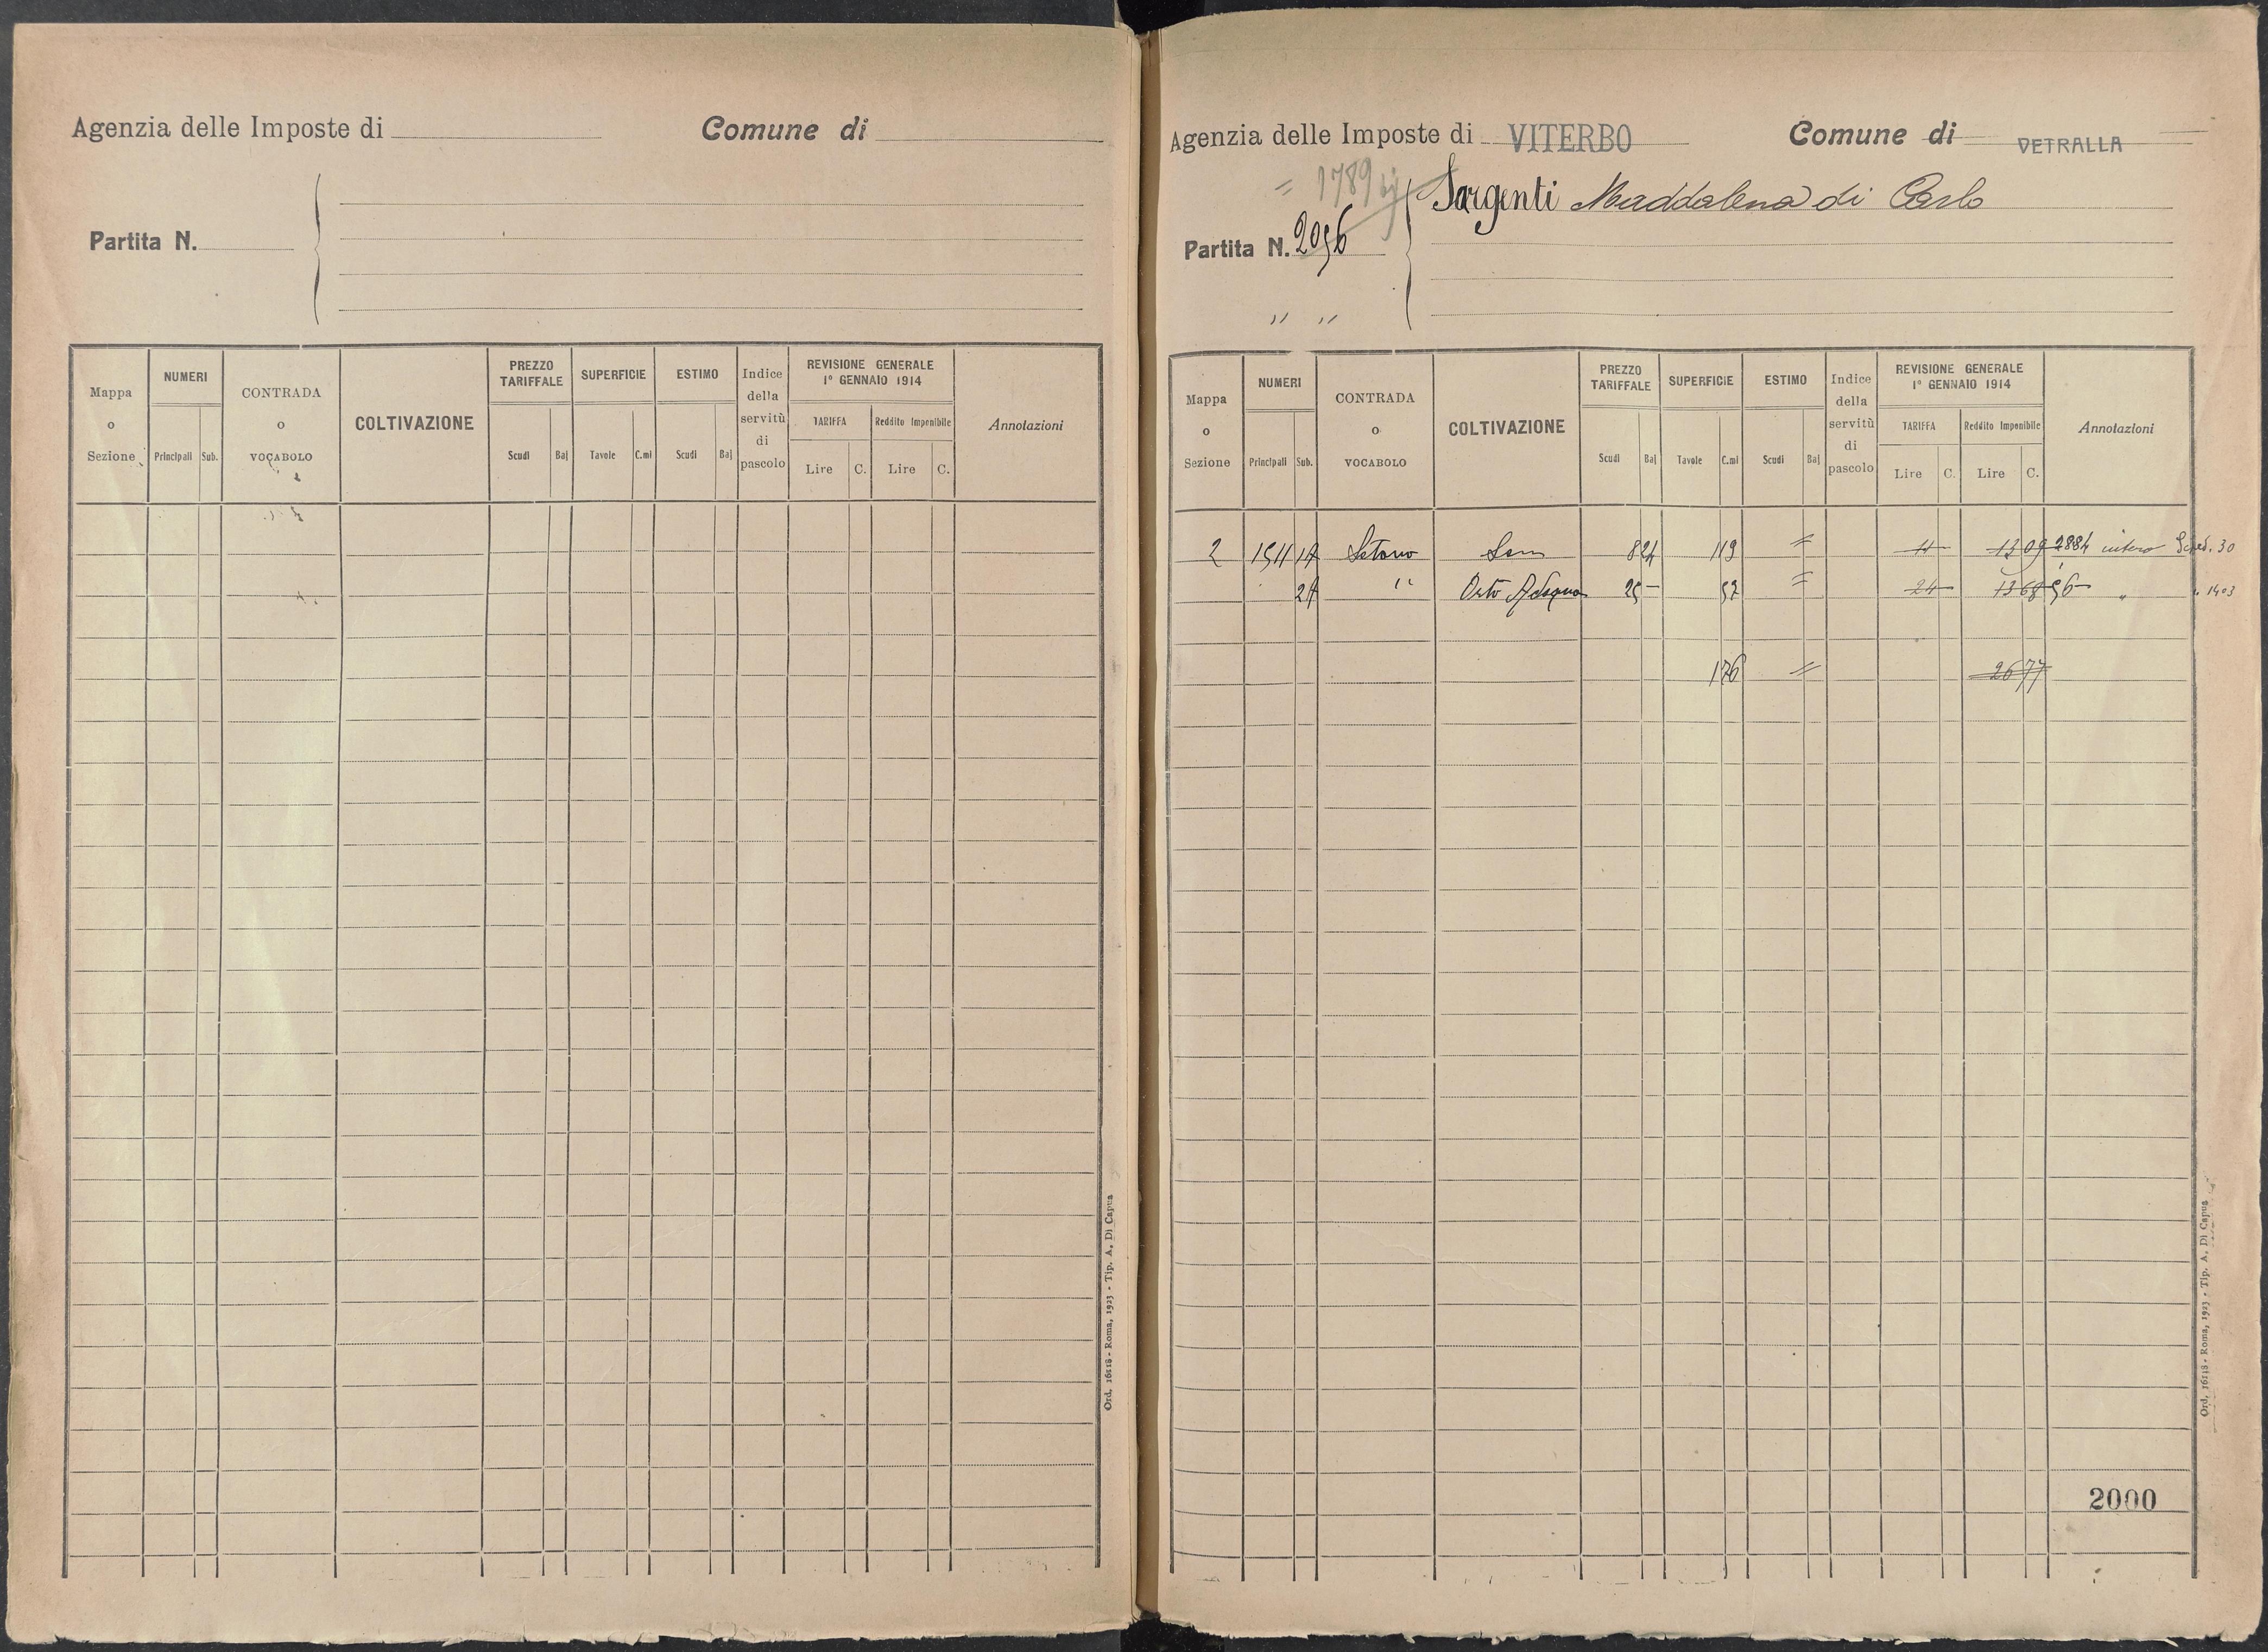 Agenzia delle Imposte di
Comune di
Partita N.
Mappa o Sezione
NUMERI
Principali Sub.
CONTRADA o VOCABOLO
COLTIVAZIONE
PREZZO TARIFFALE
Scudi Baj
SUPERFICIE
Tavole C.mi
ESTIMO
Scudi Baj
Indice della servitù di pascolo
REVISIONE GENERALE
1° GENNAIO 1914
TARIFFA Reddito Imponibile
Lire C. Lire C.
Annotazioni
Ord. 16118 - Roma, 1923 - Tip. A. Di Capua
Agenzia delle Imposte di VITERBO
Comune di VETRALLA
= 1789
Sargenti Maddalena di Carlo
Partita N. 2056
" "
Mappa o Sezione
NUMERI
Principali Sub.
CONTRADA o VOCABOLO
COLTIVAZIONE
PREZZO TARIFFALE
Scudi Baj
SUPERFICIE
Tavole C.mi
ESTIMO
Scudi Baj
Indice della servitù di pascolo
REVISIONE GENERALE
1° GENNAIO 1914
TARIFFA Reddito Imponibile
Lire C. Lire C.
Annotazioni
2 1511 1A Sem 8 24 1 19 = 11 13 09 2884 intero Sched. 30
2A " Orto Adaqua 25 - 57 = 24 13 68 56 " " 1403
1 76 = 26 77
2000
Ord. 16118 - Roma, 1923 - Tip. A. Di Capua